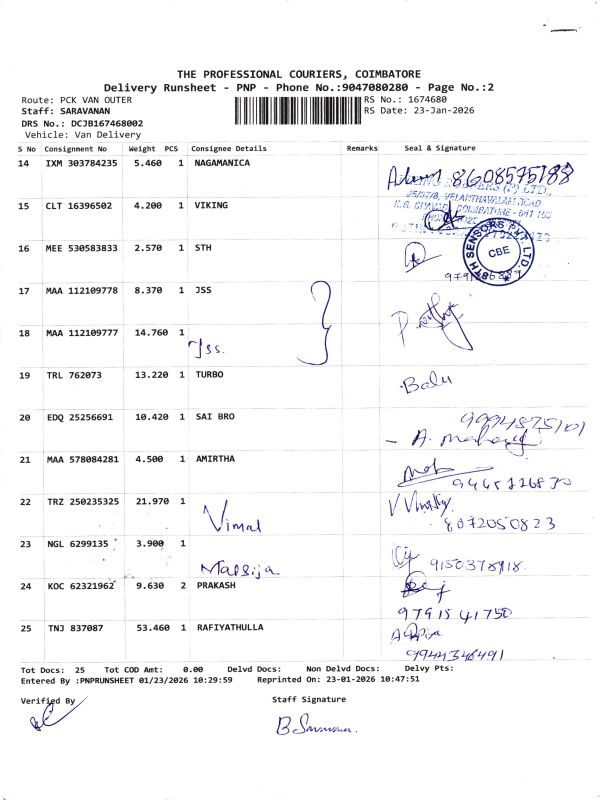 THE PROFESSIONAL COURIERS, COIMBATORE
Delivery Runsheet - PNP - Phone No.:9047080280 - Page No.:2
Route: PCK VAN OUTER RS No.: 1674680
Staff: SARAVANAN RS Date: 23-Jan-2026
DRS No.: DCJB167468002
Vehicle: Van Delivery
S No Consignment No Weight PCS Consignee Details Remarks Seal & Signature
14 IXM 303784235 5.460 1 NAGAMANICA 8608575188
15 CLT 16396502 4.200 1 VIKING
16 MEE 530583833 2.570 1 STH
SENSORS PVT. LTD.
CBE
17 MAA 112109778 8.370 1 JSS
18 MAA 112109777 14.760 1 Jss.
19 TRL 762073 13.220 1 TURBO Balu
20 EDQ 25256691 10.420 1 SAI BRO 9994875101
21 MAA 578084281 4.500 1 AMIRTHA
22 TRZ 250235325 21.970 1 Vimal 8072050823
23 NGL 6299135 3.900 1
24 KOC 62321962 9.630 2 PRAKASH
9791541750
25 TNJ 837087 53.460 1 RAFIYATHULLA
9944346491
Tot Docs: 25 Tot COD Amt: 0.00 Delvd Docs: Non Delvd Docs: Delvy Pts:
Entered By :PNPRUNSHEET 01/23/2026 10:29:59 Reprinted On: 23-01-2026 10:47:51
Verified By Staff Signature